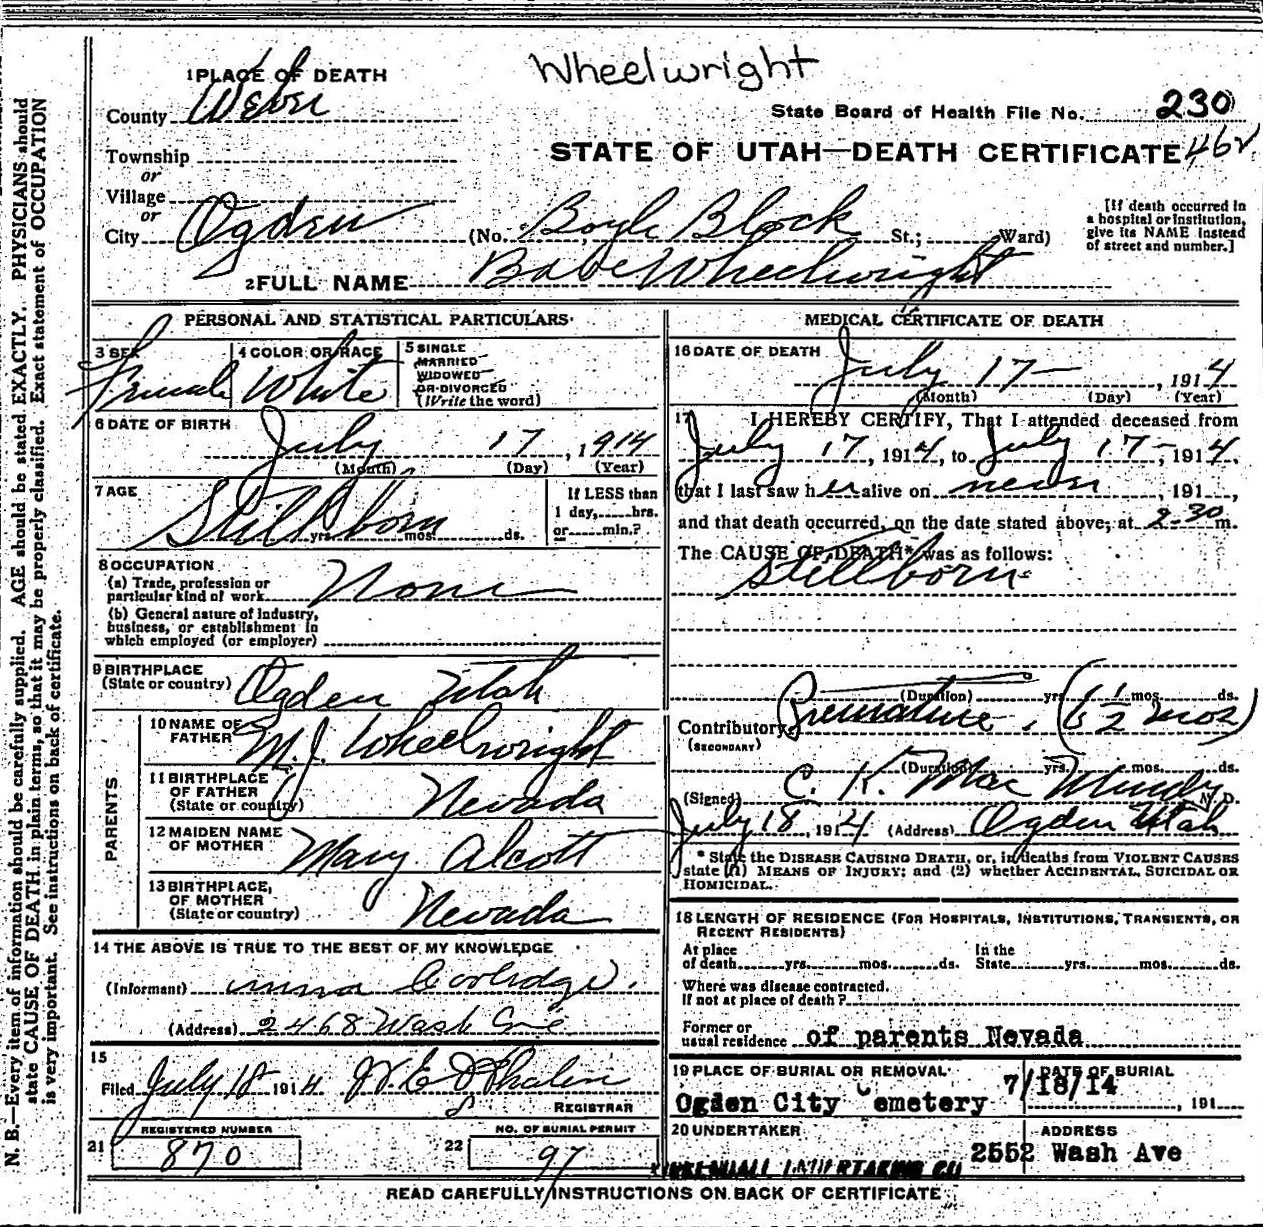 Wheelwright
1 PLACE OF DEATH
County Weber
State Board of Health File No. 230
STATE OF UTAH—DEATH CERTIFICATE 462
Township
or
Village
or
City Ogden (No. Boyle Block St.; Ward)
[If death occurred in
a hospital or institution,
give its NAME instead
of street and number.]
2 FULL NAME Babe Wheelwright
PERSONAL AND STATISTICAL PARTICULARS
3 SEX Female
4 COLOR OR RACE White
5 SINGLE
MARRIED
WIDOWED
OR DIVORCED
(Write the word)
6 DATE OF BIRTH
July 17, 1914
(Month) (Day) (Year)
7 AGE
Stillborn
yrs. mos. ds.
If LESS than
1 day, hrs.
or min.?
8 OCCUPATION
(a) Trade, profession or
particular kind of work None
(b) General nature of industry,
business, or establishment in
which employed (or employer)
9 BIRTHPLACE
(State or country) Ogden Utah
PARENTS
10 NAME OF
FATHER M. J. Wheelwright
11 BIRTHPLACE
OF FATHER
(State or country) Nevada
12 MAIDEN NAME
OF MOTHER Mary Alcott
13 BIRTHPLACE,
OF MOTHER
(State or country) Nevada
14 THE ABOVE IS TRUE TO THE BEST OF MY KNOWLEDGE
(Informant) Coolidge
(Address) 2468 Wash Ave
15
Filed July 18 1914
REGISTRAR
21 REGISTERED NUMBER
870
22 NO. OF BURIAL PERMIT
97
MEDICAL CERTIFICATE OF DEATH
16 DATE OF DEATH
July 17, 1914
(Month) (Day) (Year)
17 I HEREBY CERTIFY, That I attended deceased from
July 17, 1914, to July 17, 1914,
that I last saw her alive on never, 191 ,
and that death occurred, on the date stated above, at 2-30 m.
The CAUSE OF DEATH* was as follows:
Stillborn
(Duration) yrs. mos. ds.
Contributory Premature. (6 1/2 mos)
(SECONDARY)
(Duration) yrs. mos. ds.
(Signed) C. K. Mac Murdy M.D.
July 18, 1914 (Address) Ogden Utah
* State the DISEASE CAUSING DEATH, or, in deaths from VIOLENT CAUSES
state (1) MEANS OF INJURY; and (2) whether ACCIDENTAL, SUICIDAL OR
HOMICIDAL.
18 LENGTH OF RESIDENCE (FOR HOSPITALS, INSTITUTIONS, TRANSIENTS, OR
RECENT RESIDENTS)
At place
of death yrs. mos. ds.
In the
State yrs. mos. ds.
Where was disease contracted,
If not at place of death?
Former or
usual residence of parents Nevada
19 PLACE OF BURIAL OR REMOVAL
Ogden City Cemetery
DATE OF BURIAL
7/18/14 , 191
20 UNDERTAKER
UNDERTAKING CO
ADDRESS
2552 Wash Ave
READ CAREFULLY INSTRUCTIONS ON BACK OF CERTIFICATE
N. B.—Every item of information should be carefully supplied. AGE should be stated EXACTLY. PHYSICIANS should
state CAUSE OF DEATH in plain terms, so that it may be properly classified. Exact statement of OCCUPATION
is very important. See instructions on back of certificate.